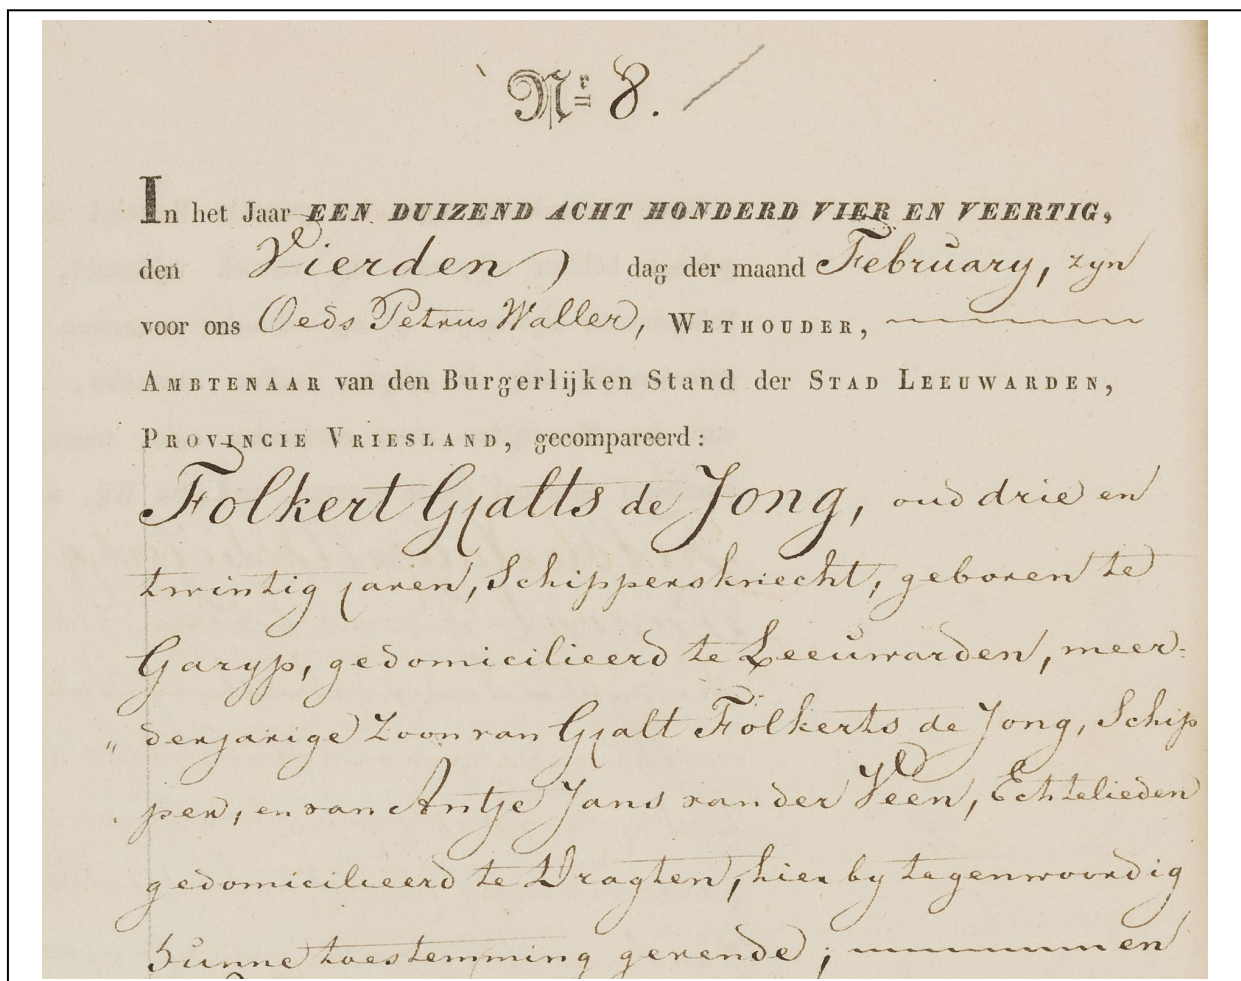 Nr 8.
In het Jaar EEN DUIZEND ACHT HONDERD VIER EN VEERTIG,
den Vierden dag der maand February, zyn
voor ons Oeds Petrus Waller, WETHOUDER,
AMBTENAAR van den Burgerlijken Stand der STAD LEEUWARDEN,
PROVINCIE VRIESLAND, gecompareerd:
Folkert Gjalts de Jong, oud drie en
twintig jaren, Schippersknecht, geboren te
Garyp, gedomicilieerd te Leeuwarden, meer=
„ derjarige Zoon van Gjalt Folkerts de Jong, Schip
per, en van Antje Jans van der Veen, Echtelieden
gedomicilieerd te Dragten, hier by tegenwoordig
hunne toestemming gevende; en